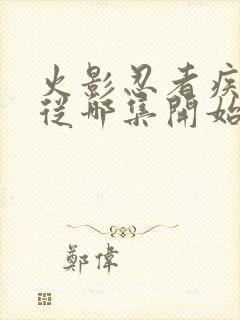 火影忍者疾
從哪集開始
鄭偉